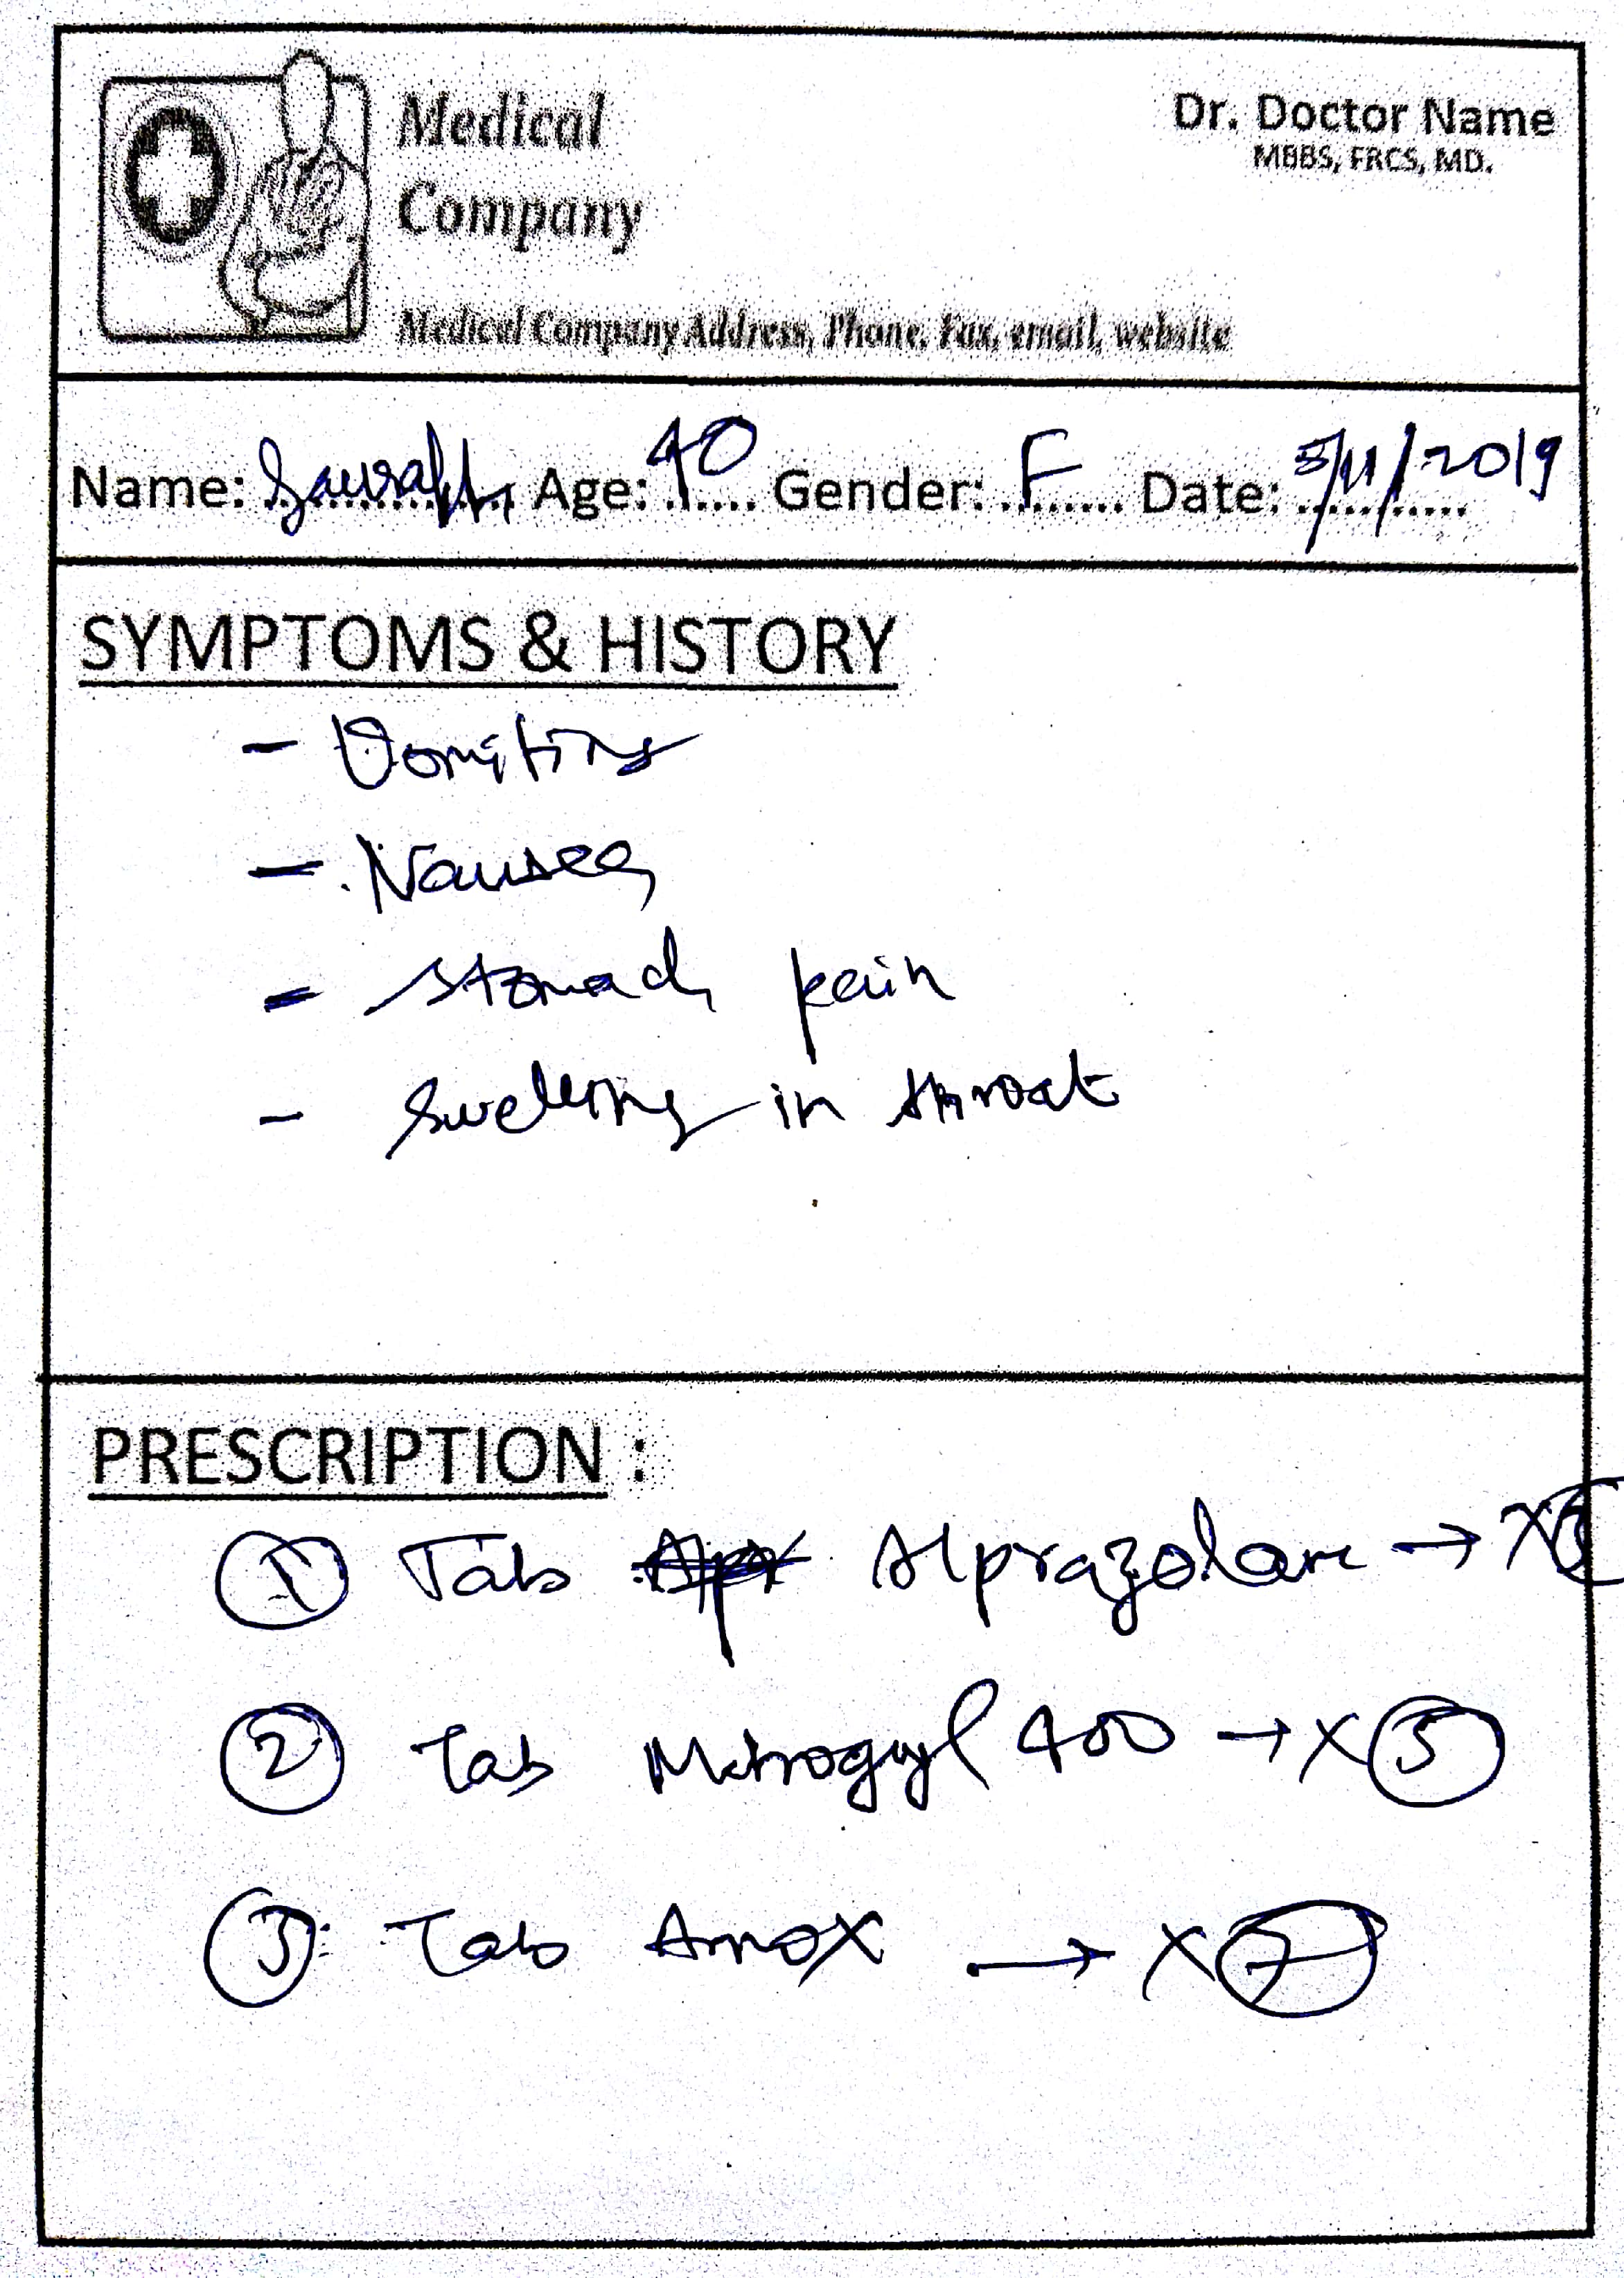 Medical
Company
Dr. Doctor Name
MBBS, FRCS, MD.
Medical Company Address, Phone, Fax, email, website
Name: Saurabh Age: 40 Gender: F Date: 5/11/2019
SYMPTOMS & HISTORY
- Vomiting
- Nausea
- Stomach pain
- Swelling in throat
PRESCRIPTION :
① Tab Alprazolam → X
② Tab Metrogyl 400 → X ⑤
③ Tab Amox → X ⑦